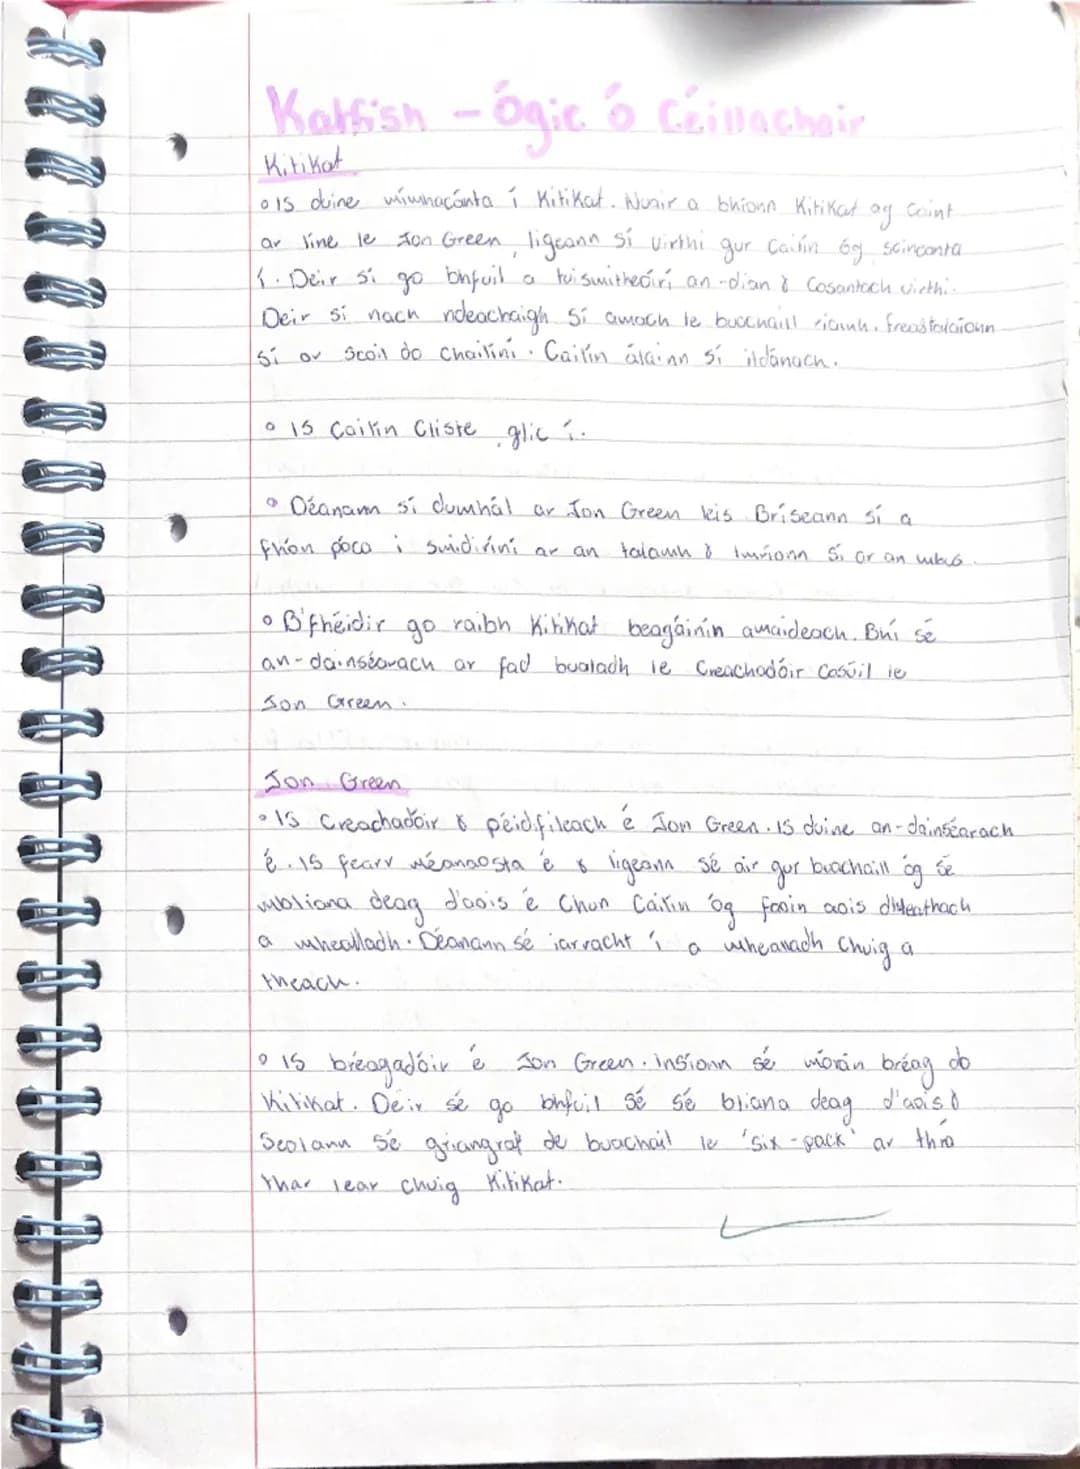 Katfish - Ógic ó Céillachair
Kitikat
• Is duine mímhacánta í Kitikat. Nuair a bhíonn Kitikat ag caint
ar líne le Jon Green, ligeann sí uirthi gur cailín óg soineanta
í. Deir sí go bhfuil a tuismitheoirí an-dian & cosantach uirthi.
Deir sí nach ndeachaigh sí amach le buachaill riamh. Freastalaíonn
sí ar scoil do chailíní. Cailín álainn sí ildánach.
• Is cailín cliste glic í.
• Déanann sí dumhál ar Jon Green leis. Briseann sí a
fhón póca i smidiríní ar an talamh & imríonn sí ar an mbus.
• B'fhéidir go raibh Kitikat beagáinín amaideach. Bhí sé
an-dainséarach ar fad bualadh le creachadóir cosúil le
Jon Green.
Jon Green
• Is creachadóir & péidifileach é Jon Green. Is duine an-dainséarach
é. Is fearr méanaosta é & ligeann sé air gur buachaill óg sé
mbliana deag d'aois é chun cailín óg faoin aois dhleathach
a mhealladh. Déanann sé iarracht í a mhealladh chuig a
theach.
• Is bréagadóir é Jon Green. Insíonn sé mórán bréag do
Kitikat. Deir sé go bhfuil sé sé bliana deag d'aois &
Seolann sé grianghraf de buachail le 'six-pack' ar thrá
thar lear chuig Kitikat.